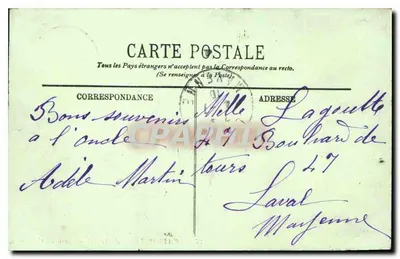 CARTE POSTALE
Tous les Pays étrangers n'acceptent pas la Correspondance au recto.
(Se renseigner à la Poste).
CORRESPONDANCE
ADRESSE
Bons souvenirs
à l'oncle
Adèle Martin
Mlle Lagoutte
47 Boulevard de
tours 47
Laval
Mayenne